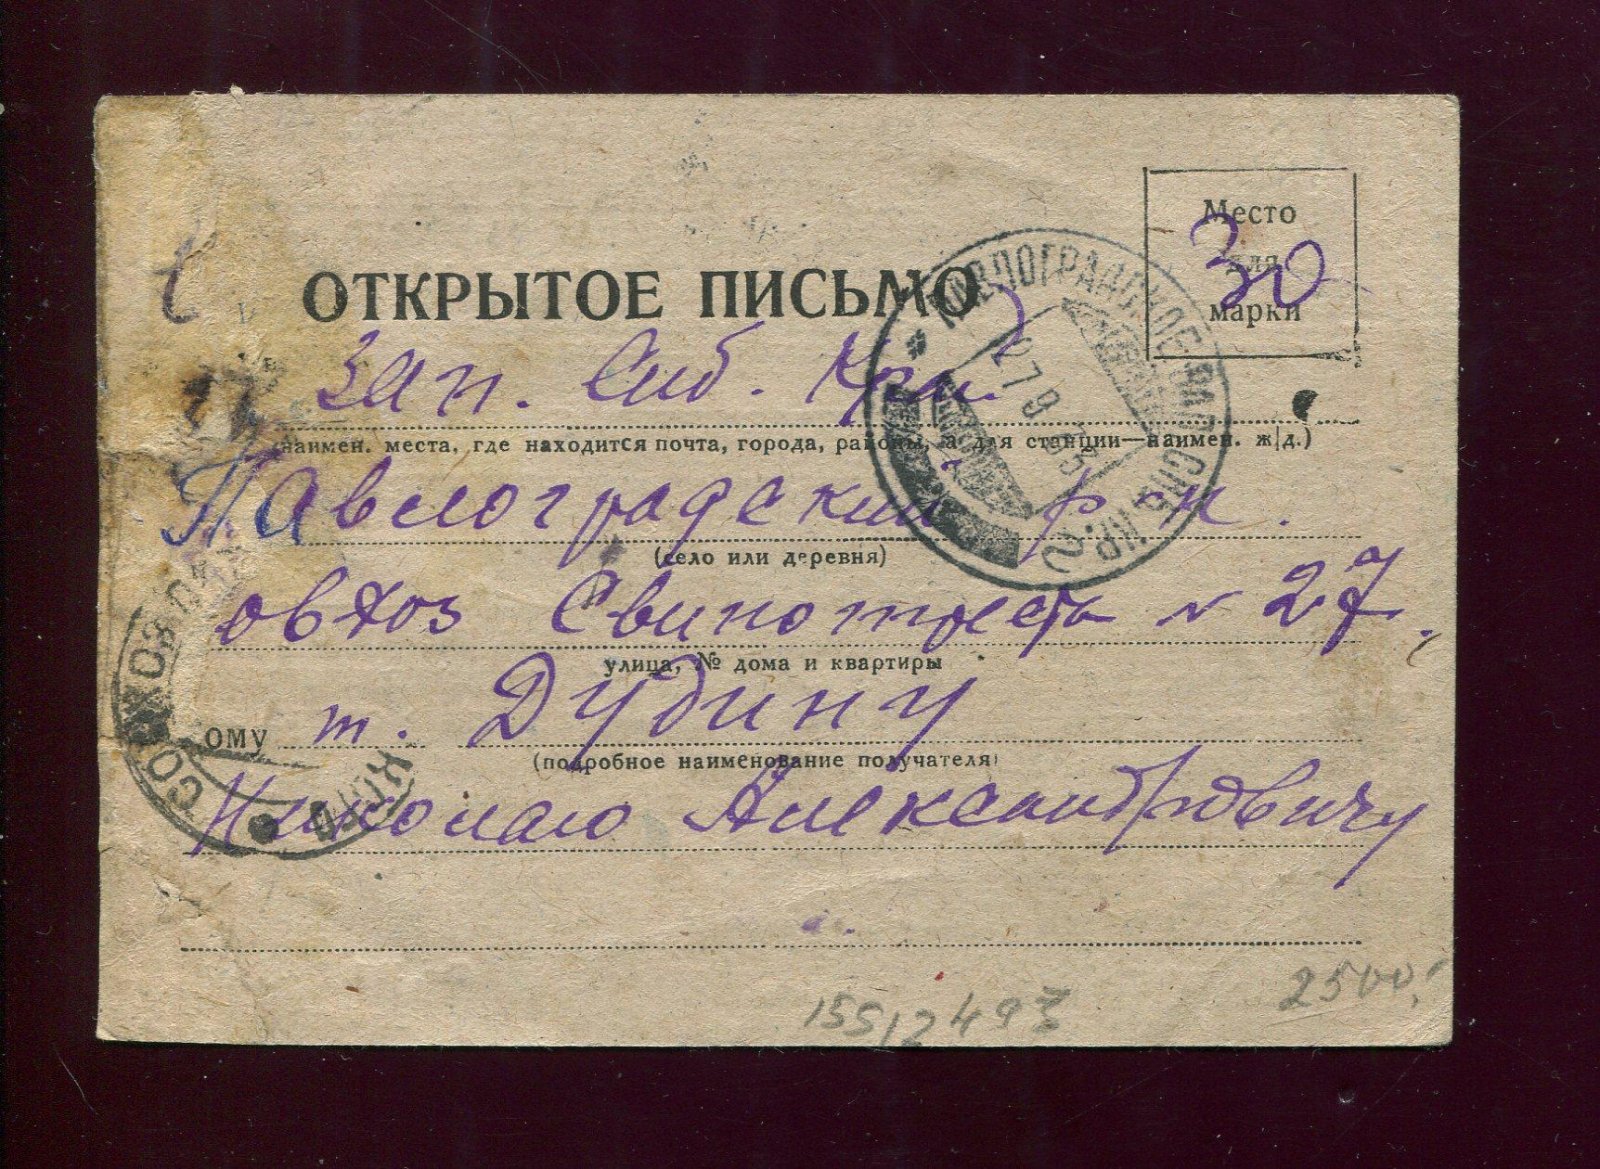 Место
для
марки
30
ОТКРЫТОЕ ПИСЬМО
Зап. Сиб. Край
наимен. места, где находится почта, города, районы, а для станции—наимен. ж|д.)
Павлоградский р-н.
(село или деревня)
овхоз Свинотреста № 27.
улица, № дома и квартиры
ому т. Дубину
(подробное наименование получателя)
Николаю Александровичу
ПАВЛОГРАДСКОЕ
27 9 35
СОВХОЗ
15512497
2500